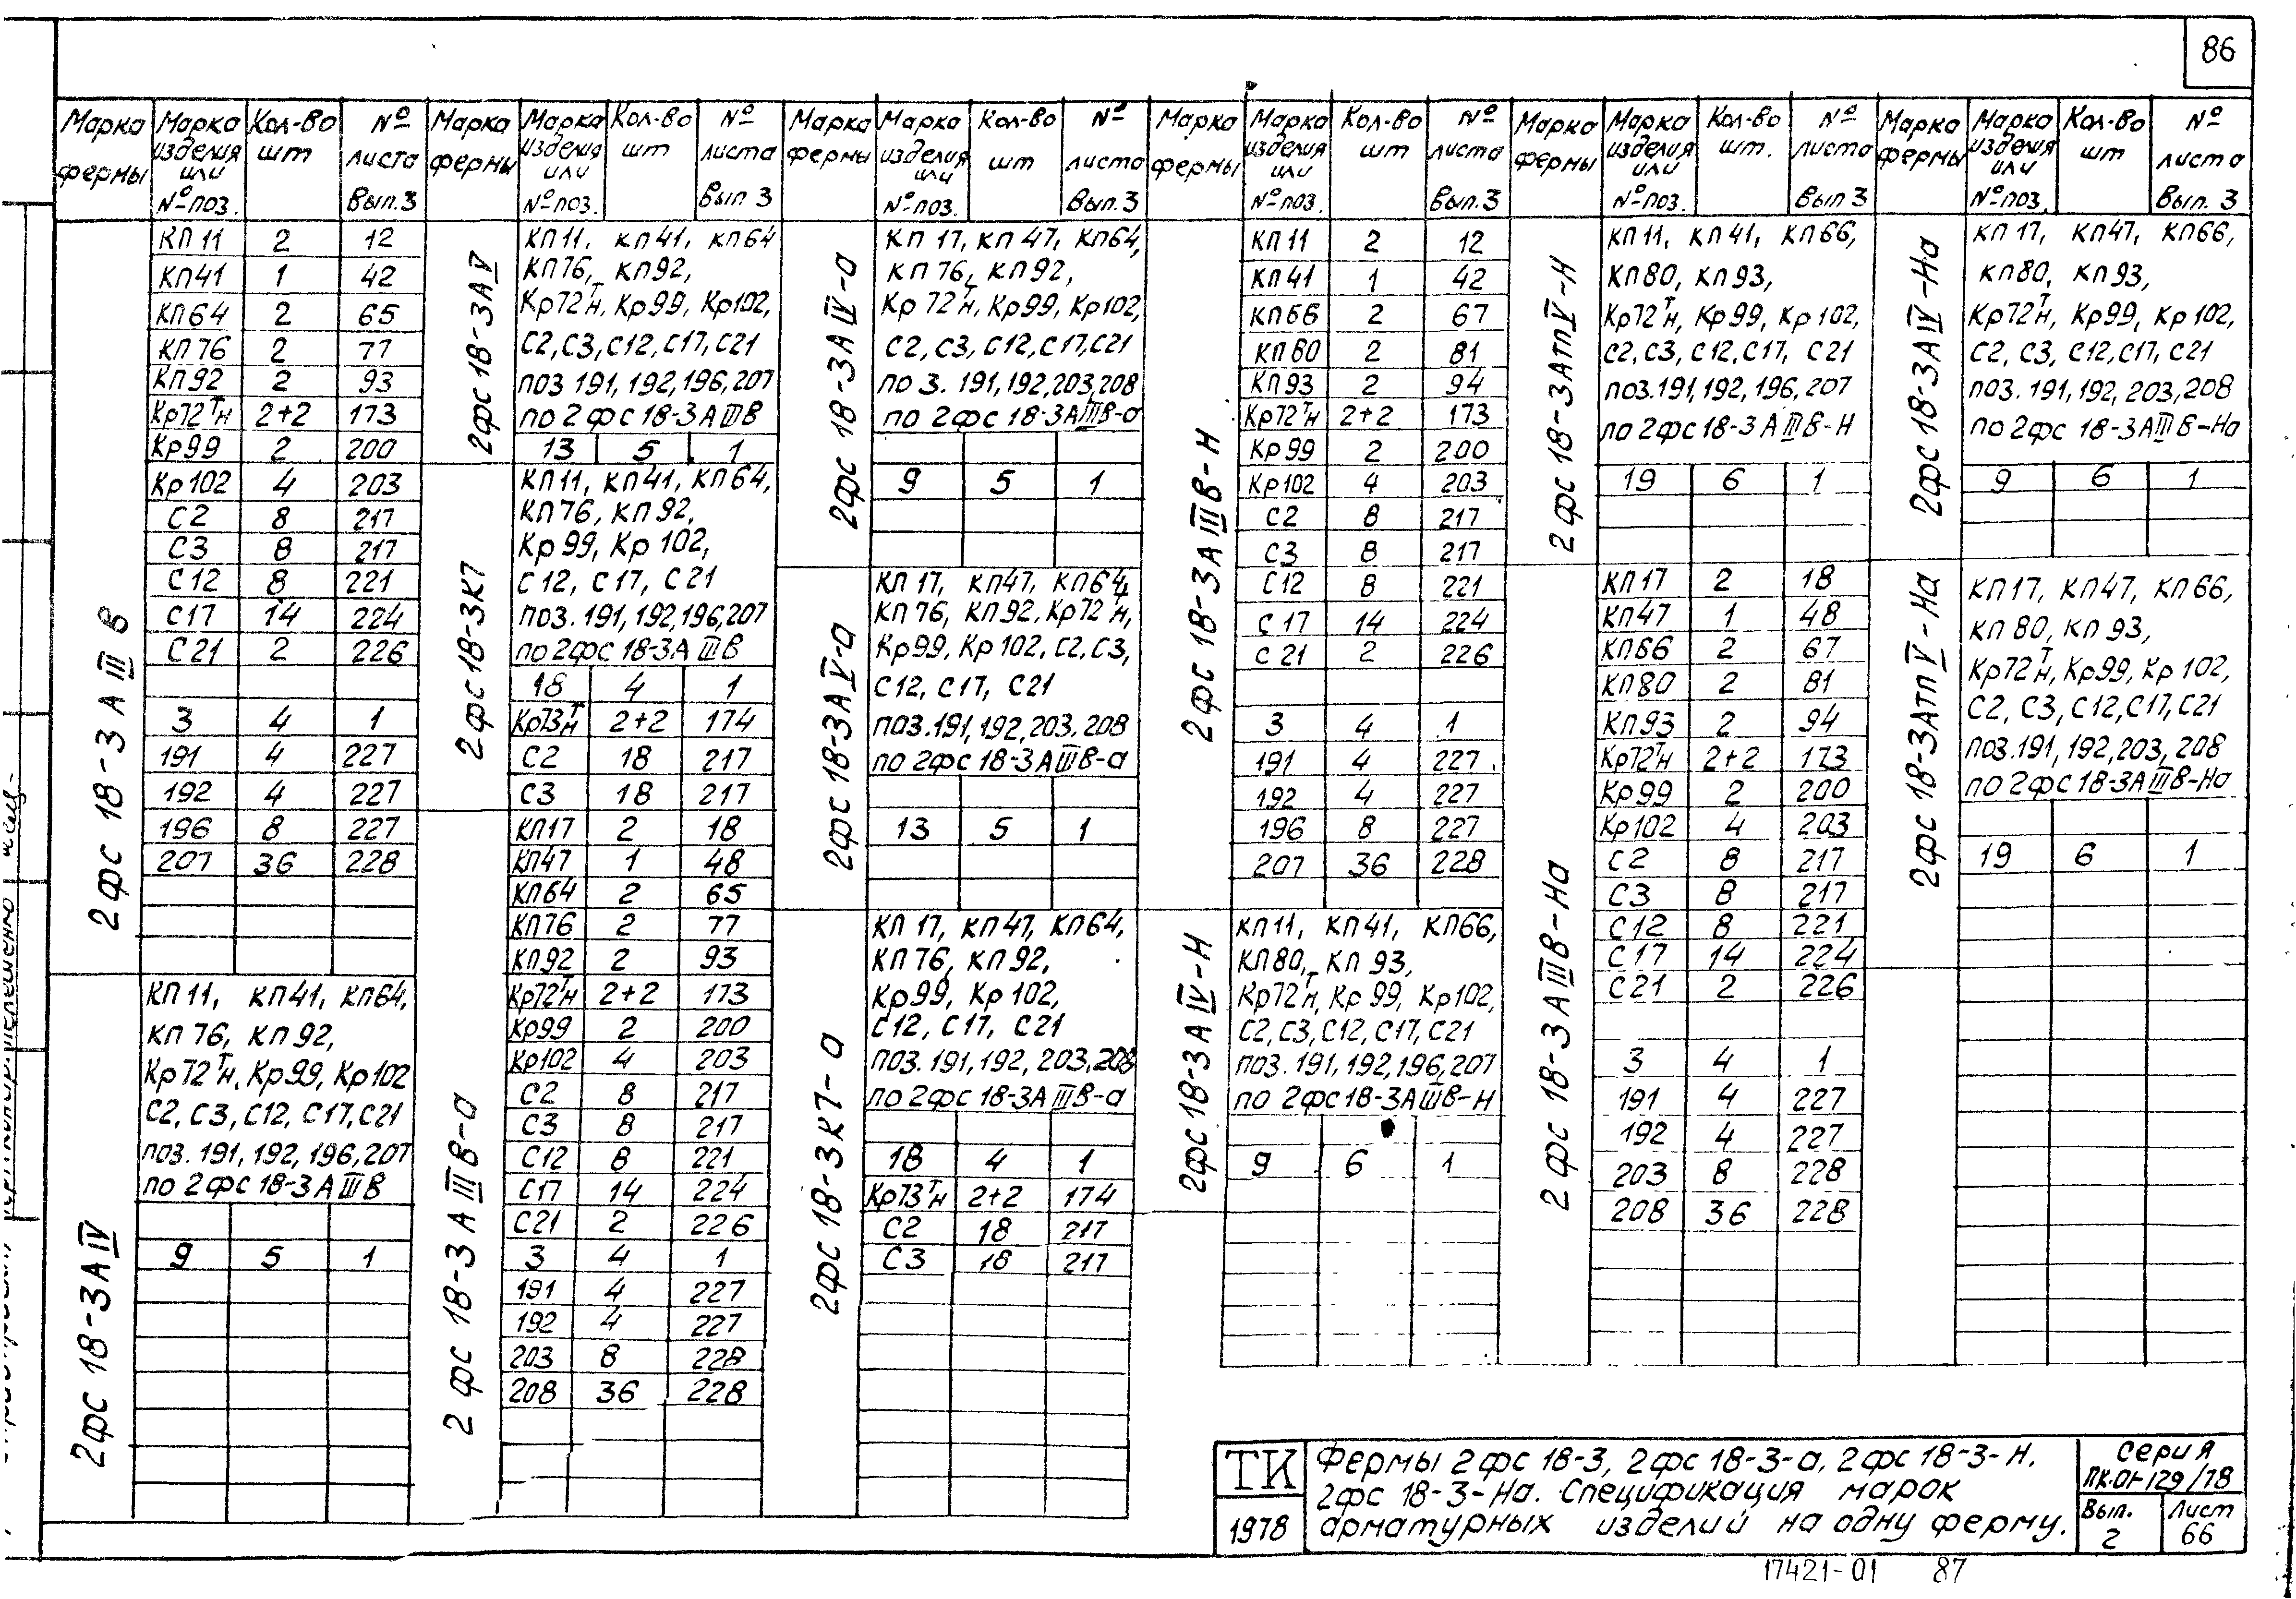 86
Марка фермы | Марка изделия или № поз. | Кол-во шт | № листа Вып. 3
2фс 18-3АIIIВ
КП11 2 12
КП41 1 42
КП64 2 65
КП76 2 77
КП92 2 93
Кр72ᵀн 2+2 173
Кр99 2 200
Кр102 4 203
С2 8 217
С3 8 217
С12 8 221
С17 14 224
С21 2 226
3 4 1
191 4 227
192 4 227
196 8 227
207 36 228
2фс 18-3АIV
КП11, КП41, КП64,
КП76, КП92,
Кр72ᵀн, Кр99, Кр102
С2, С3, С12, С17, С21
поз. 191, 192, 196, 207
по 2фс 18-3АIIIВ
9 5 1
Марка фермы | Марка изделия или № поз. | Кол-во шт | № листа Вып 3
2фс 18-3АV
КП11, КП41, КП64
КП76, КП92,
Кр72ᵀн, Кр99, Кр102,
С2, С3, С12, С17, С21
поз 191, 192, 196, 207
по 2фс 18-3АIIIВ
13 5 1
2фс 18-3К7
КП11, КП41, КП64,
КП76, КП92,
Кр99, Кр102,
С12, С17, С21
поз. 191, 192, 196, 207
по 2фс 18-3АIIIВ
18 4 1
Кр73ᵀн 2+2 174
С2 18 217
С3 18 217
2фс 18-3АIIIВ-а
КП17 2 18
КП47 1 48
КП64 2 65
КП76 2 77
КП92 2 93
Кр72ᵀн 2+2 173
Кр99 2 200
Кр102 4 203
С2 8 217
С3 8 217
С12 8 221
С17 14 224
С21 2 226
3 4 1
191 4 227
192 4 227
203 8 228
208 36 228
Марка фермы | Марка изделия или № поз. | Кол-во шт | № листа Вып. 3
2фс 18-3АIV-а
КП17, КП47, КП64,
КП76, КП92,
Кр72ᵀн, Кр99, Кр102,
С2, С3, С12, С17, С21
поз. 191, 192, 203, 208
по 2фс 18-3АIIIВ-а
9 5 1
2фс 18-3АV-а
КП17, КП47, КП64,
КП76, КП92, Кр72ᵀн,
Кр99, Кр102, С2, С3,
С12, С17, С21
поз. 191, 192, 203, 208
по 2фс 18-3АIIIВ-а
13 5 1
2фс 18-3К7-а
КП17, КП47, КП64,
КП76, КП92,
Кр99, Кр102,
С12, С17, С21
поз. 191, 192, 203, 208
по 2фс 18-3АIIIВ-а
18 4 1
Кр73ᵀн 2+2 174
С2 18 217
С3 18 217
Марка фермы | Марка изделия или № поз. | Кол-во шт | № листа Вып. 3
2фс 18-3АIIIВ-Н
КП11 2 12
КП41 1 42
КП66 2 67
КП80 2 81
КП93 2 94
Кр72ᵀн 2+2 173
Кр99 2 200
Кр102 4 203
С2 8 217
С3 8 217
С12 8 221
С17 14 224
С21 2 226
3 4 1
191 4 227
192 4 227
196 8 227
207 36 228
2фс 18-3АIV-Н
КП11, КП41, КП66,
КП80, КП93,
Кр72ᵀн, Кр99, Кр102,
С2, С3, С12, С17, С21
поз. 191, 192, 196, 207
по 2фс 18-3АIIIВ-Н
9 6 1
Марка фермы | Марка изделия или № поз. | Кол-во шт. | № листа Вып 3
2фс 18-3АтпV-Н
КП11, КП41, КП66,
КП80, КП93,
Кр72ᵀн, Кр99, Кр102,
С2, С3, С12, С17, С21
поз. 191, 192, 196, 207
по 2фс 18-3АIIIВ-Н
19 6 1
2фс 18-3АIIIВ-На
КП17 2 18
КП47 1 48
КП66 2 67
КП80 2 81
КП93 2 94
Кр72ᵀн 2+2 173
Кр99 2 200
Кр102 4 203
С2 8 217
С3 8 217
С12 8 221
С17 14 224
С21 2 226
3 4 1
191 4 227
192 4 227
203 8 228
208 36 228
Марка фермы | Марка изделия или № поз. | Кол-во шт | № листа Вып. 3
2фс 18-3АIV-На
КП17, КП47, КП66,
КП80, КП93,
Кр72ᵀн, Кр99, Кр102,
С2, С3, С12, С17, С21
поз. 191, 192, 203, 208
по 2фс 18-3АIIIВ-На
9 6 1
2фс 18-3АтпV-На
КП17, КП47, КП66,
КП80, КП93,
Кр72ᵀн, Кр99, Кр102,
С2, С3, С12, С17, С21
поз. 191, 192, 203, 208
по 2фс 18-3АIIIВ-На
19 6 1
ТК
1978
Фермы 2фс 18-3, 2фс 18-3-а, 2фс 18-3-Н.
2фс 18-3-На. Спецификация марок
арматурных изделий на одну ферму.
Серия
ПК-01-129/78
Вып. 2
Лист 66
17421-01 87